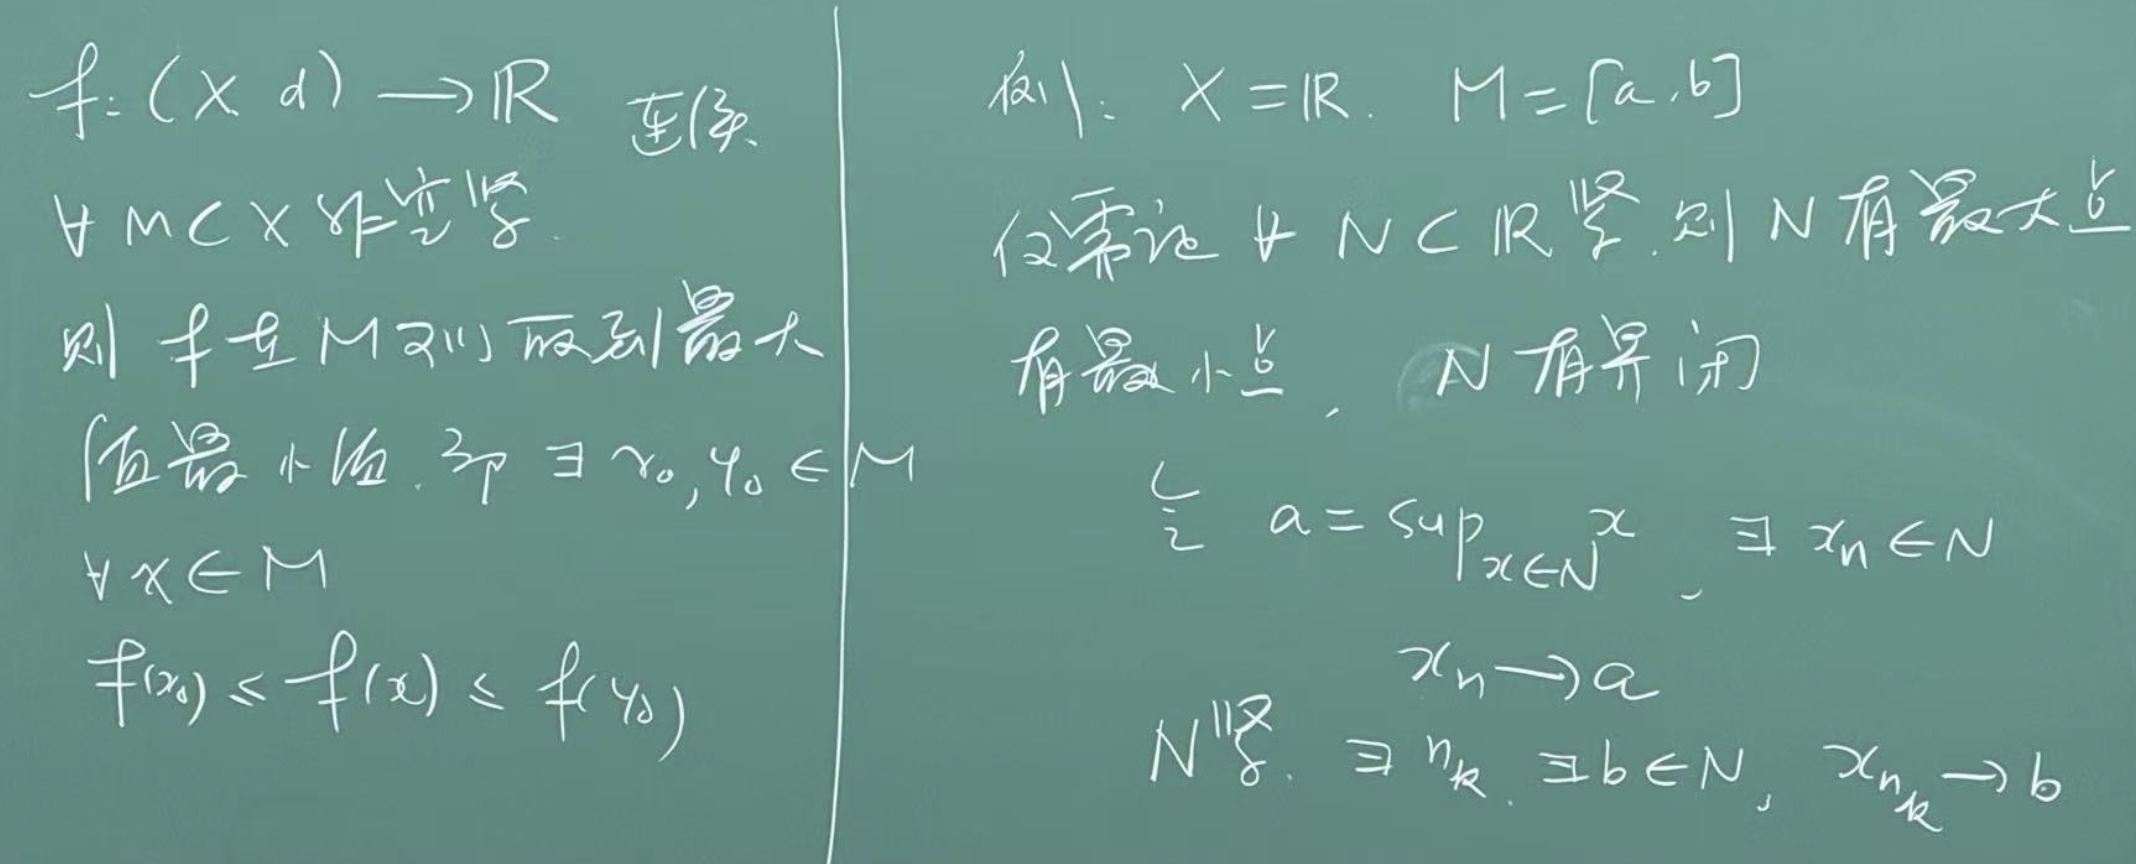 f: (X d) → ℝ 连续
∀ M ⊂ X 非空紧.
则 f 在 M 可以取到最大
值最小值. 即 ∃ x₀, y₀ ∈ M
∀ x ∈ M
f(x₀) ≤ f(x) ≤ f(y₀)
例: X = ℝ. M = [a, b]
仅需证 ∀ N ⊂ ℝ 紧. 则 N 有最大点
有最小点, N 有界闭
记 a = sup_{x∈N} x, ∃ xₙ ∈ N
xₙ → a
N 紧. ∃ n_k. ∃ b ∈ N, x_{n_k} → b